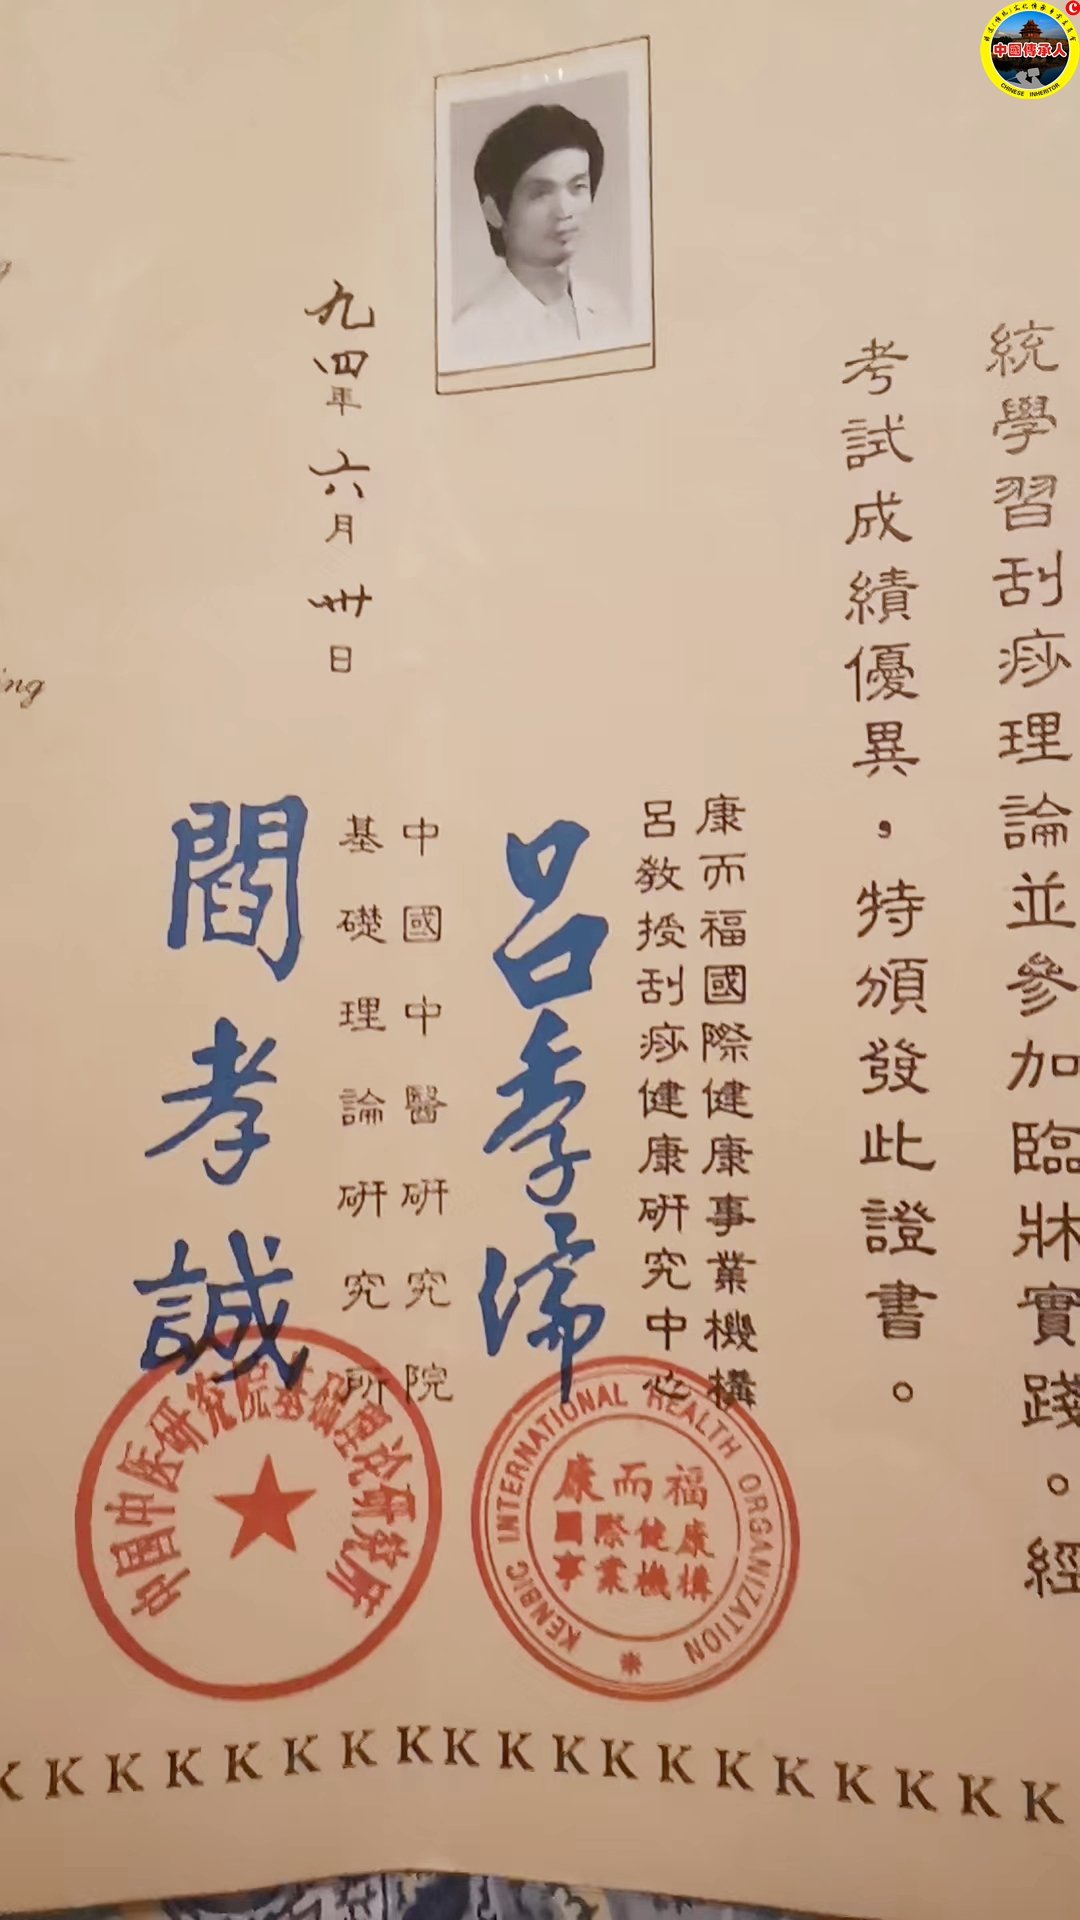 統學習刮痧理論並參加臨牀實踐。經
考試成績優異，特頒發此證書。
康而福國際健康事業機構
呂教授刮痧健康研究中心
呂季儒
中國中醫研究院
基礎理論研究所
閻孝誠
九四年六月卅日
KENBIC INTERNATIONAL HEALTH ORGANIZATION
康而福
國際健康
事業機構
中国中医研究院基础理论研究所
ing
K K K K K K K K K K K K K K K K K K K
中國傳承人
CHINESE INHERITOR